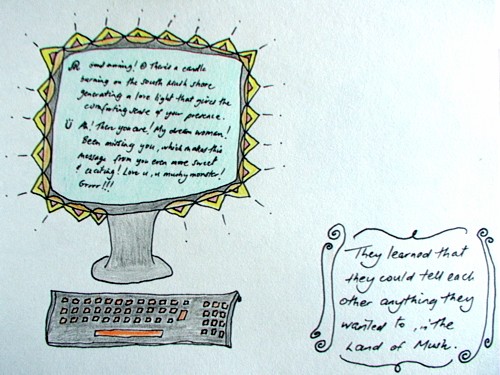 R Good morning! There's a candle
burning on the South Mush shore
generating a love light that gives the
comforting sense of your presence.
U Ah! There you are! My dream woman!
Been missing you, which makes this
message from you even more sweet
& exciting! Love u, u mushy monster!
Grrrr!!!
They learned that
they could tell each
other anything they
wanted to, in the
Land of Mush.